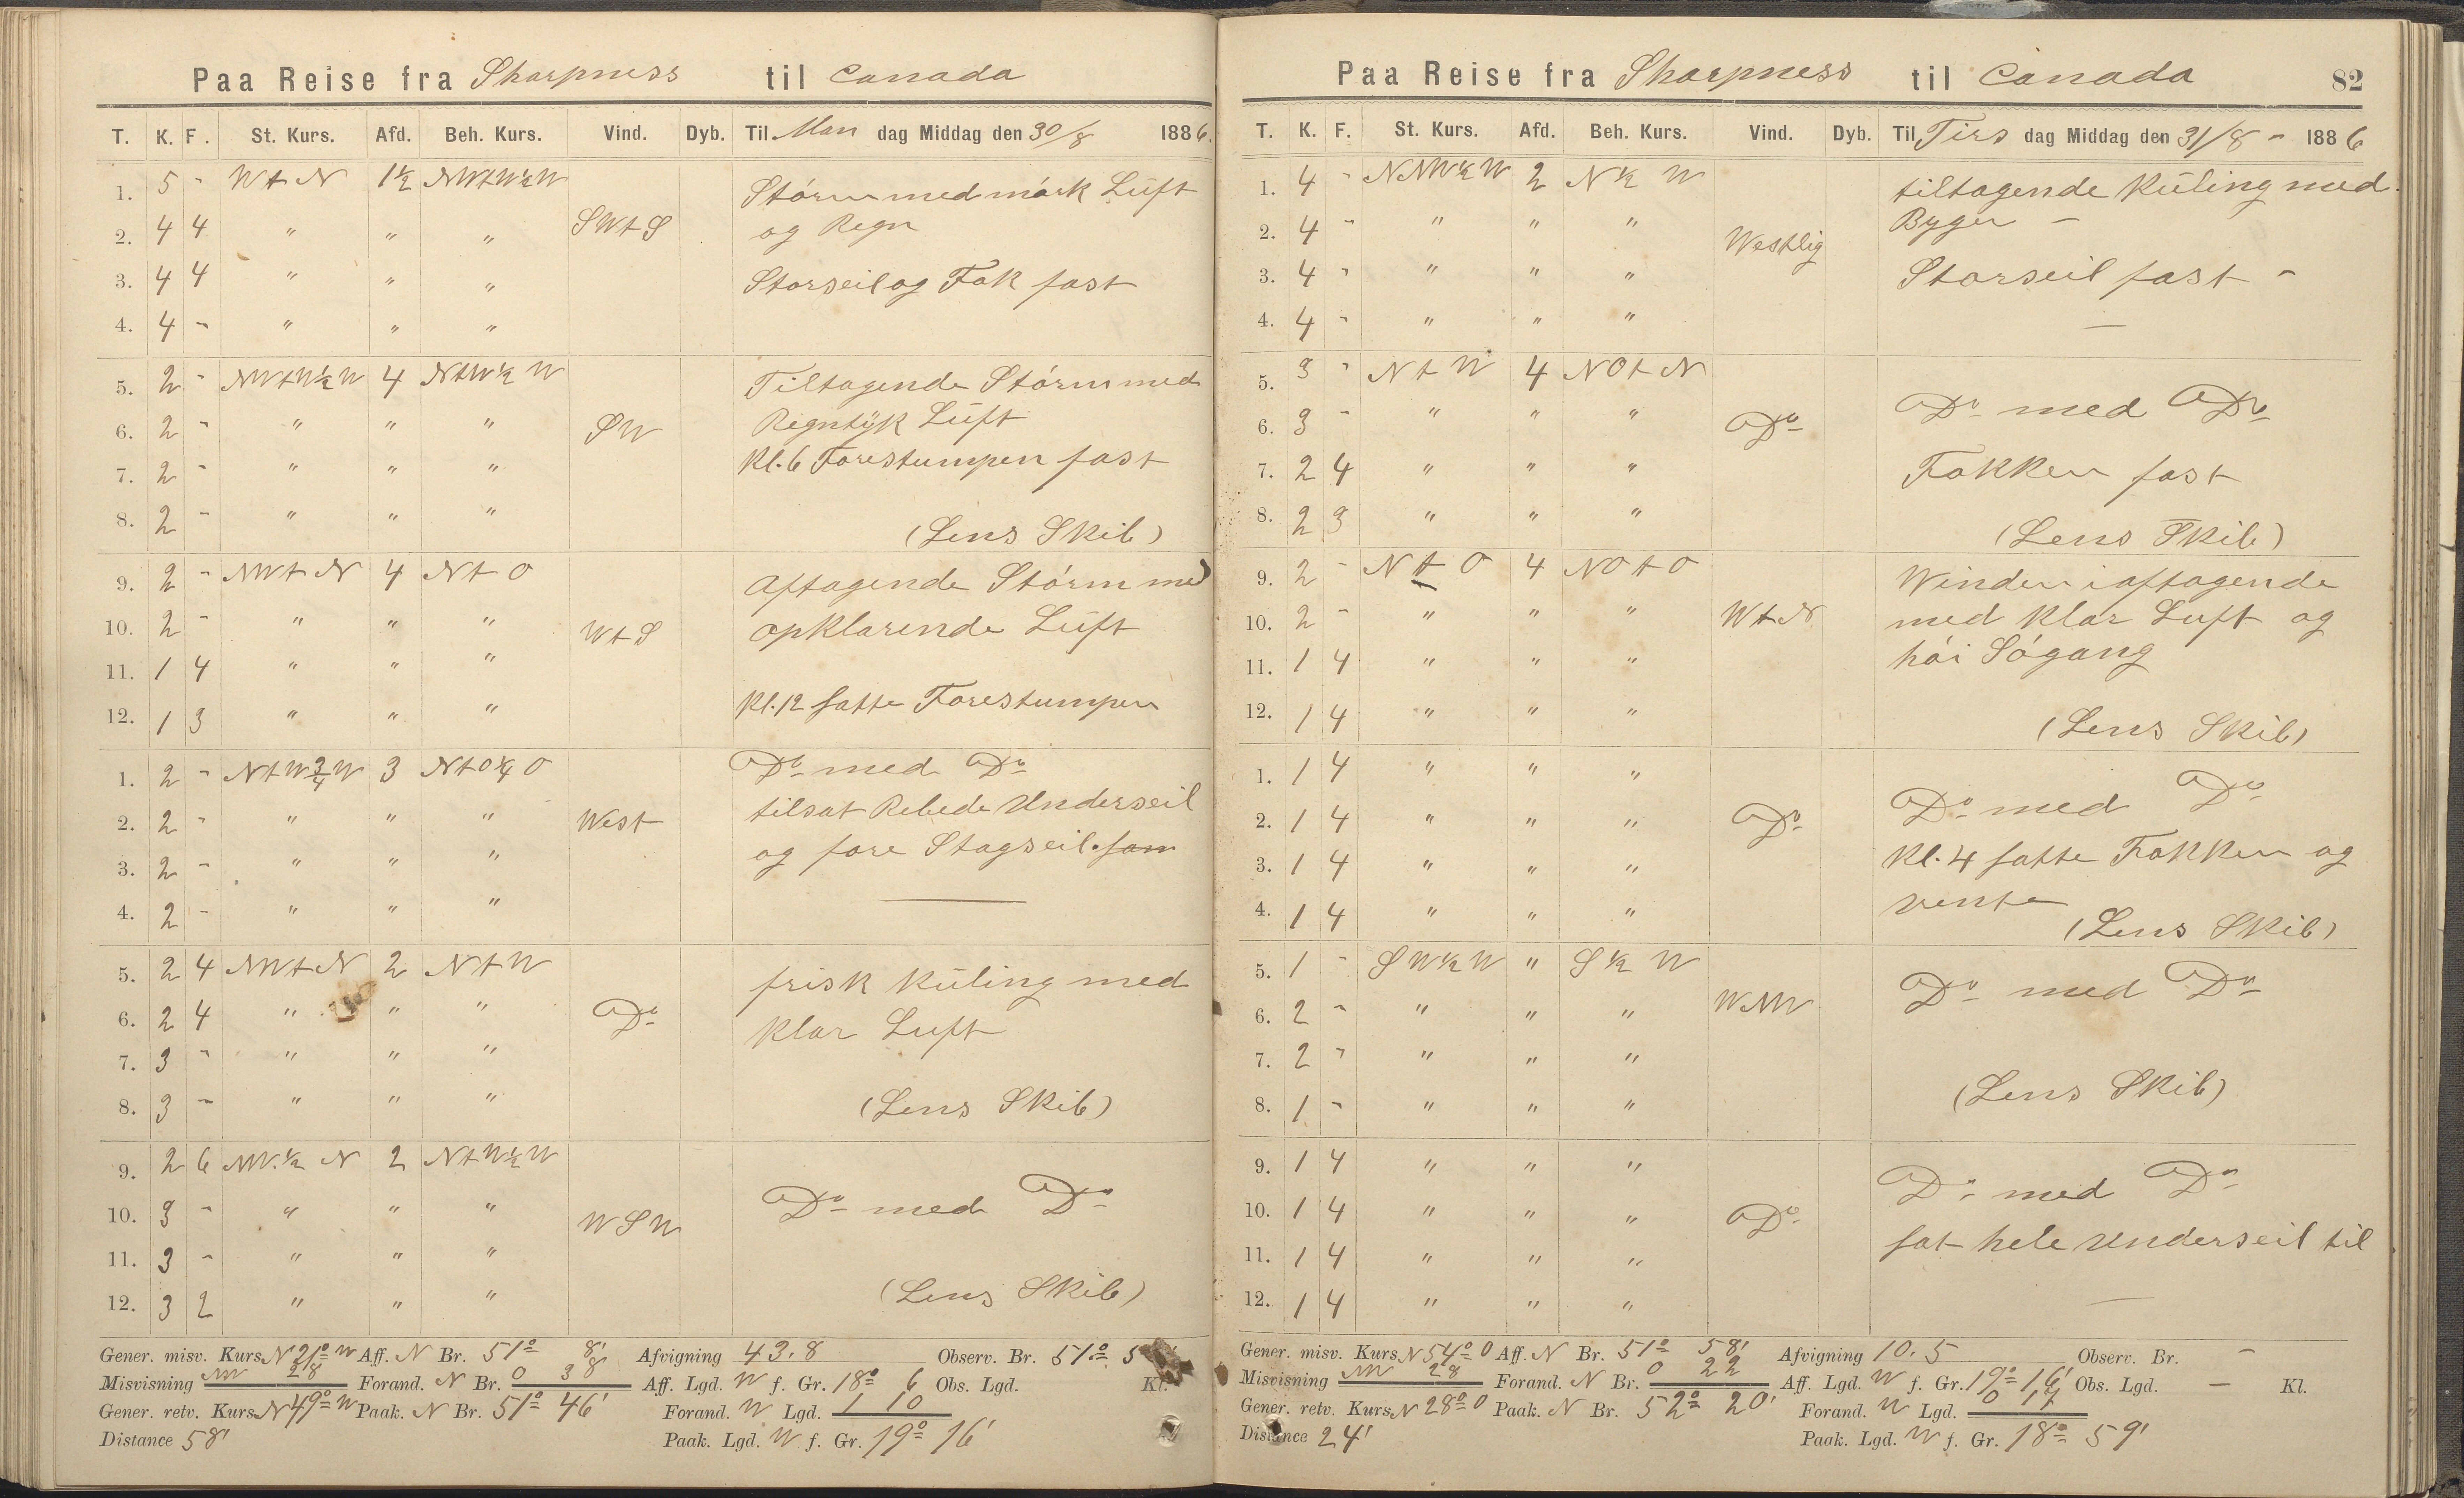 Paa Reise fra Sharpness til Canada
T. K. F. St. Kurs. Afd. Beh. Kurs. Vind. Dyb. Til Man dag Middag den 30/8 1886.
1. 5 - WtN 1½ NWtW½W Stórm med mórk Lúft
2. 4 4 " " " SWtS og Regn
3. 4 4 " " " Storseil og Fok fast
4. 4 - " " "
5. 2 - NWtW½W 4 NtW½W Tiltagende Stórm med
6. 2 - " " " SW Regntÿk Lúft
7. 2 - " " " Kl. 6 Forestumpen fast
8. 2 - " " " (Lens Skib)
9. 2 - NWtN 4 NtO Aftagende Stórm med
10. 2 - " " " WtS opklarende Lúft
11. 1 4 " " "
12. 1 3 " " " Kl. 12 satte Forestumpen
1. 2 - NtW¾W 3 NtO¼O Do med Do
2. 2 - " " " West tilsat Rebede Underseil
3. 2 - " " " og fore Stagseil. fam
4. 2 - " " "
5. 2 4 NWtN 2 NtW frisk Kúling med
6. 2 4 " " " Do klar Luft
7. 3 - " " "
8. 3 - " " " (Lens Skib)
9. 2 6 NW.½N 2 NtW½W
10. 3 - " " " WSW Do med Do
11. 3 - " " "
12. 3 2 " " " (Lens Skib)
Gener. misv. Kurs. N 21° W Aff. N Br. 51° 8' Afvigning 43.8 Observ. Br. 51° 5
Misvisning NW 28 Forand. N Br. 0 38 Aff. Lgd. W f. Gr. 18° 6 Obs. Lgd. Kl.
Gener. retv. Kurs. N 49° W Paak. N Br. 51° 46' Forand. W Lgd. 1 10
Distance 58' Paak. Lgd. W f. Gr. 19° 16'
Paa Reise fra Sharpness til Canada 82
T. K. F. St. Kurs. Afd. Beh. Kurs. Vind. Dyb. Til Tirs dag Middag den 31/8 - 1886
1. 4 - NNW½W 2 N½W tiltagende Kúling med
2. 4 - " " " Westlig Byger -
3. 4 - " " " Storseil fast -
4. 4 - " " "
5. 3 - NtW 4 NOtN
6. 3 - " " " Do Do med Do
7. 2 4 " " " Fokken fast
8. 2 3 " " " (Lens Skib)
9. 2 - NtO 4 NOtO Winden iaftagende
10. 2 - " " " WtN med klar Luft og
11. 1 4 " " " hói Sógang
12. 1 4 " " " (Lens Skib)
1. 1 4 " " "
2. 1 4 " " " Do Do med Do
3. 1 4 " " " Kl. 4 satte Fokken og
4. 1 4 " " " vente (Lens Skib)
5. 1 - SW½W " S½W
6. 2 - " " " WNW Do med Do
7. 2 - " " "
8. 1 - " " " (Lens Skib)
9. 1 4 " " " Do med Do
10. 1 4 " " " Do
11. 1 4 " " " sat hele Underseil til
12. 1 4 " " "
Gener. misv. Kurs. N 54° O Aff. N Br. 51° 58' Afvigning 10.5 Observ. Br. -
Misvisning NW 28 Forand. N Br. 0 22 Aff. Lgd. W f. Gr. 19° 16' Obs. Lgd. - Kl.
Gener. retv. Kurs. N 28° O Paak. N Br. 52° 20' Forand. W Lgd. 0 17
Distance 24' Paak. Lgd. W f. Gr. 18° 59'